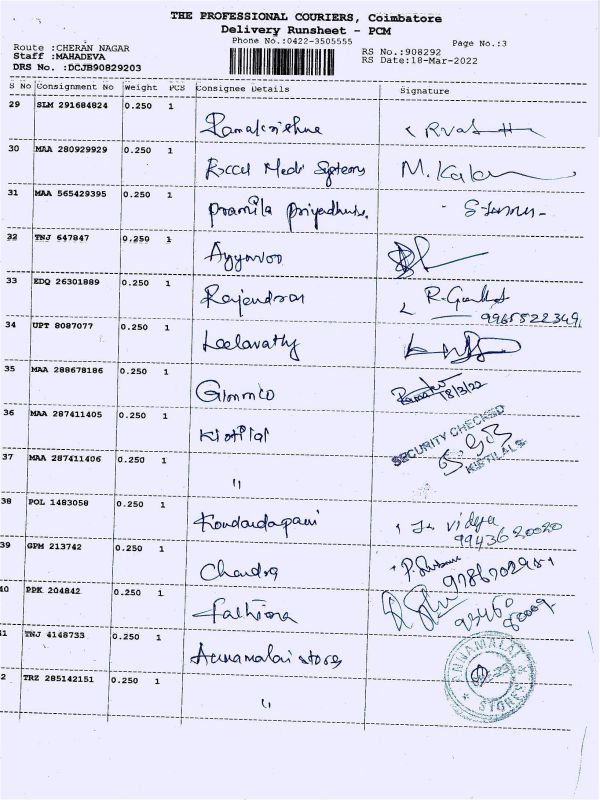 THE PROFESSIONAL COURIERS, Coimbatore
Delivery Runsheet - PCM
Phone No.:0422-3505555
Page No.:3
Route :CHERAN NAGAR
Staff :MAHADEVA
DRS No. :DCJB90829203
RS No.:908292
RS Date:18-Mar-2022
S No Consignment No Weight PCS Consignee Details Signature
29 SLM 291684824 0.250 1 Ramakrishna
30 MAA 280929929 0.250 1 Medi Systems M. Kala
31 MAA 565429395 0.250 1 Pramila Priyadhars.
32 TNJ 647847 0.250 1 Ayyavoo
33 EDQ 26301889 0.250 1 Rajendran R. 9965522349
34 UPT 8087077 0.250 1 Leelavathy
35 MAA 288678186 0.250 1 Gimmco 18/3/22
36 MAA 287411405 0.250 1 Kistilal
SECURITY CHECKED
KISTILALS
37 MAA 287411406 0.250 1 "
38 POL 1483058 0.250 1 Kondandapani Vidya
9943620020
39 GPM 213742 0.250 1 Chandra P.
40 PPK 204842 0.250 1 Fathima
41 TNJ 4148733 0.250 1 Annamalai stores
ANNAMALAI STORES
2 TRZ 285142151 0.250 1 "